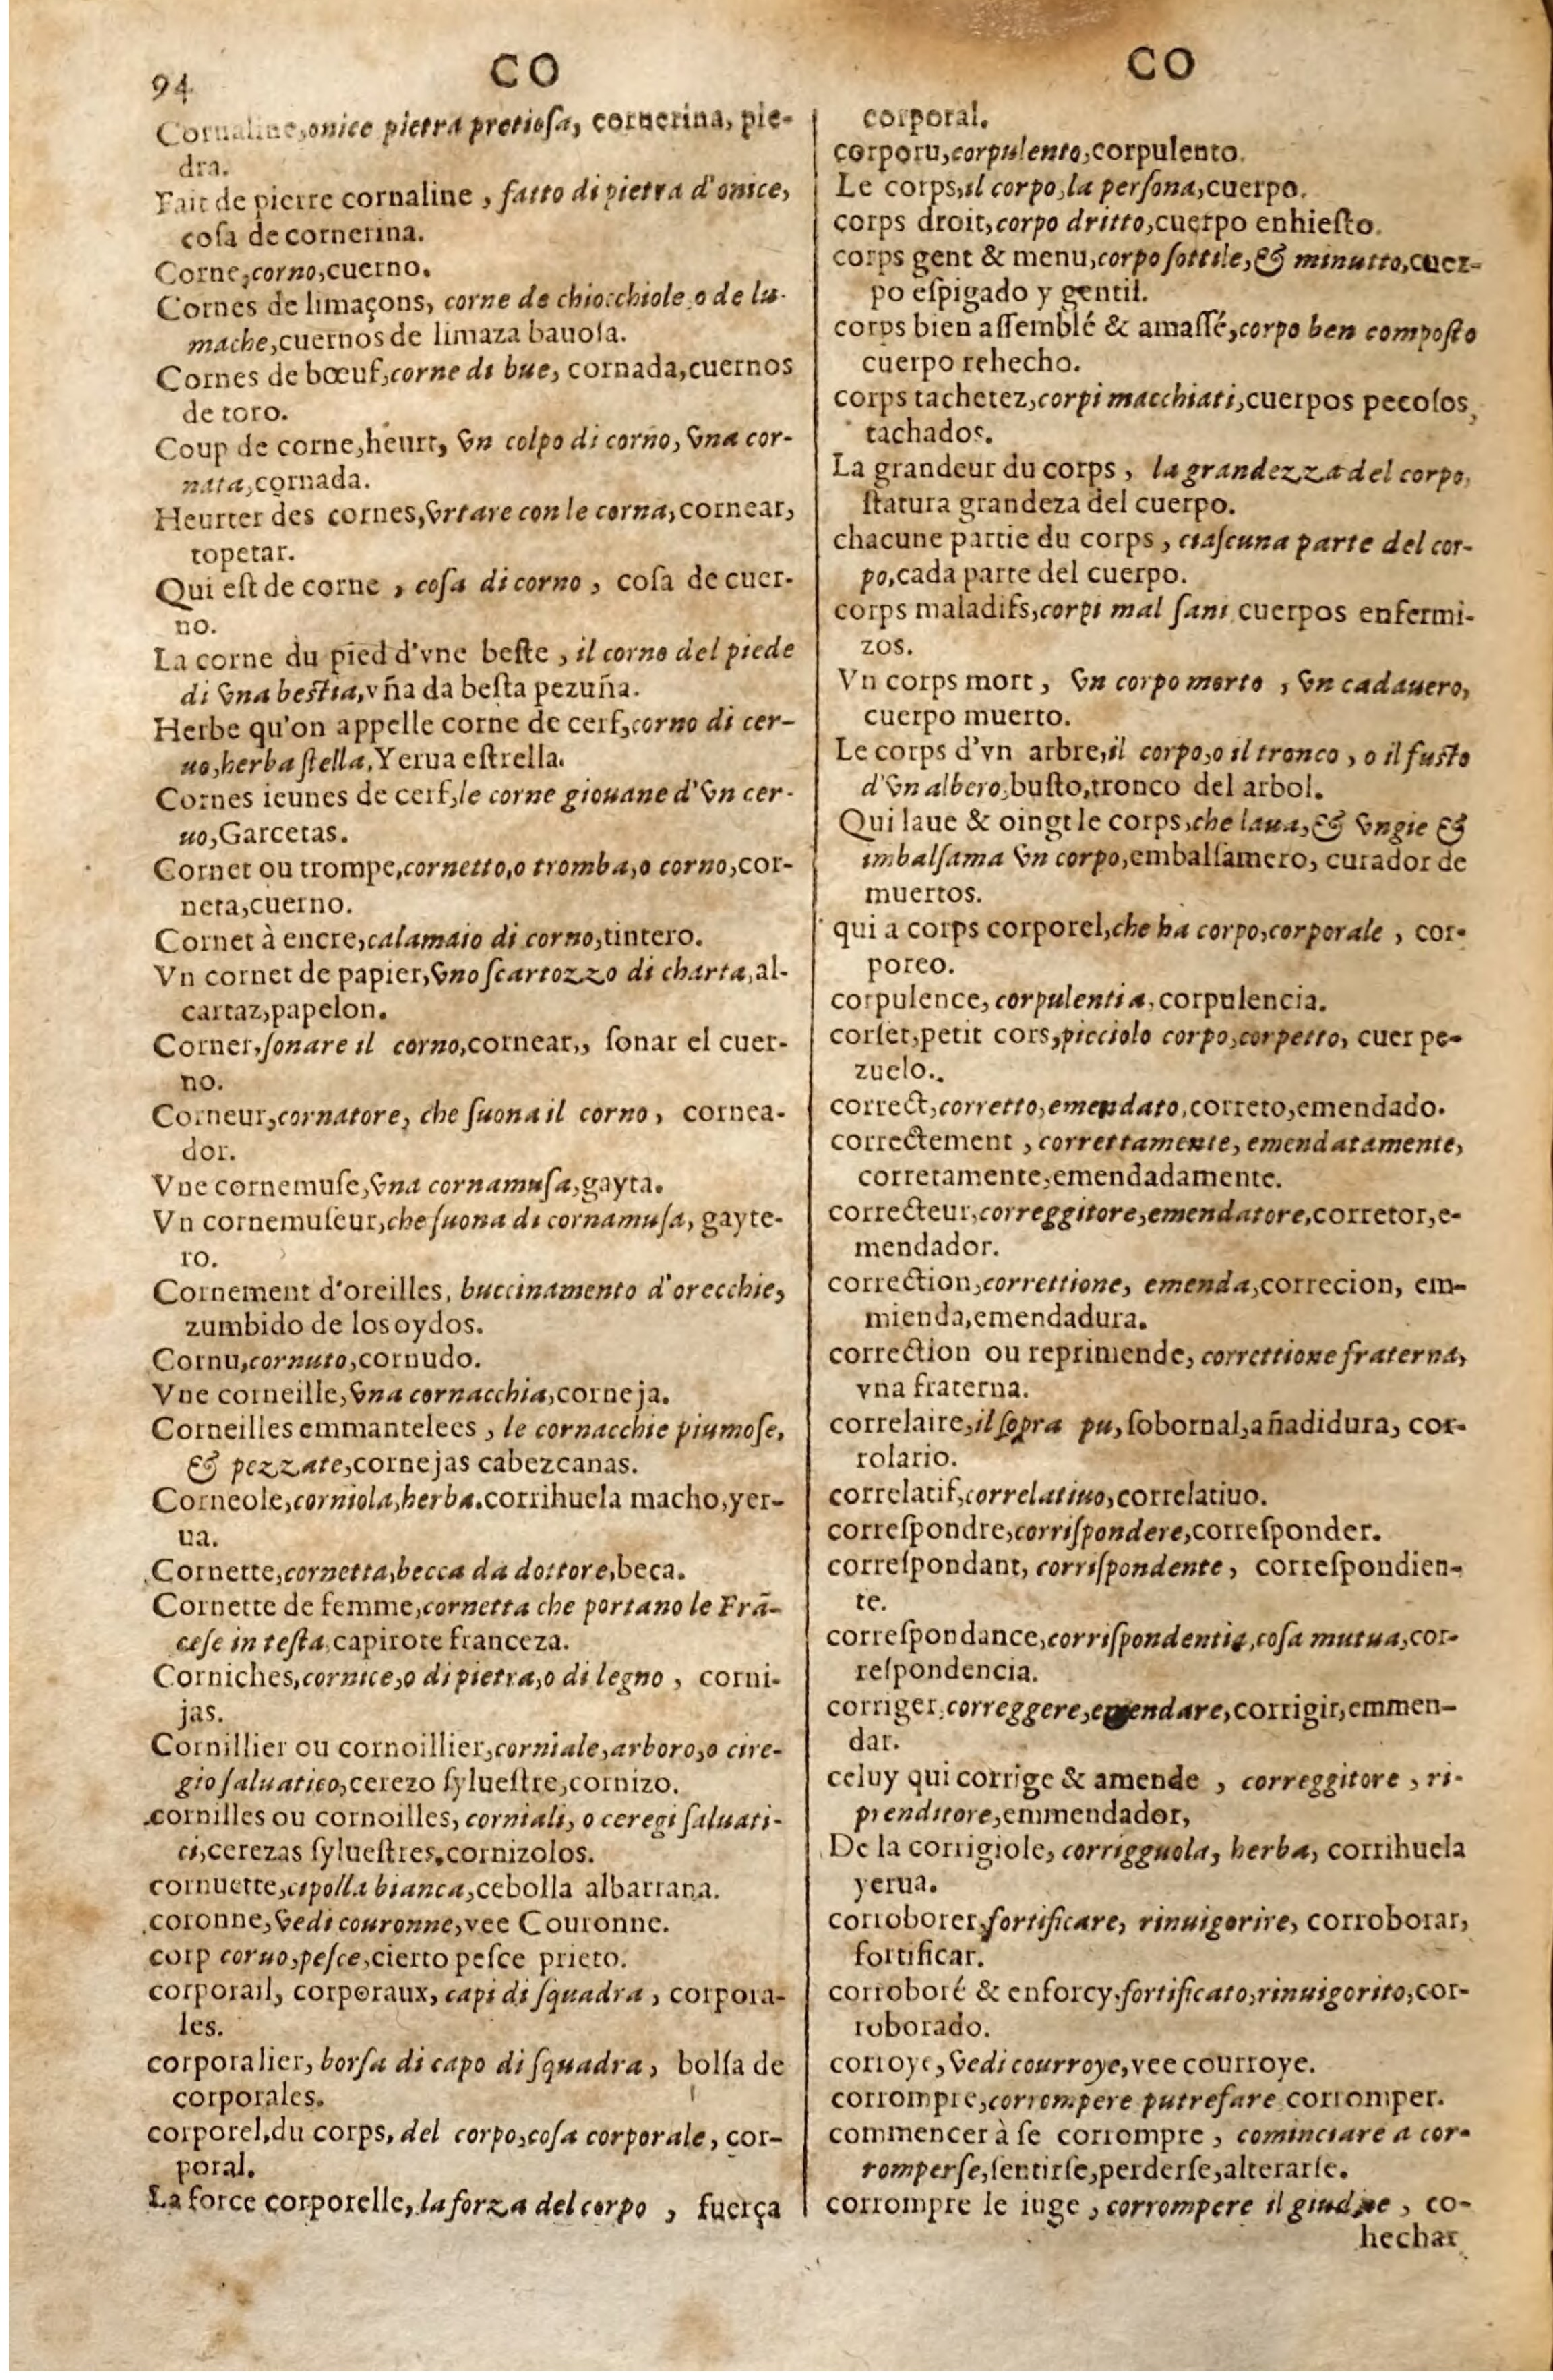 94 CO CO
Cornaline, onice pietra pretiosa, cornerina, pie-
dra.
Fait de pierre cornaline , fatto di pietra d'onice,
cosa de cornerina.
Corne, corno, cuerno.
Cornes de limaçons, corne de chiocchiole, o de lu-
mache, cuernos de limaza bauosa.
Cornes de bœuf, corne di bue, cornada, cuernos
de toro.
Coup de corne, heurt, vn colpo di corno, vna cor-
nata, cornada.
Heurter des cornes, vrtare con le corna, cornear,
topetar.
Qui est de corne , cosa di corno , cosa de cuer-
no.
La corne du pied d'vne beste , il corno del piede
di vna bestia, vña da besta pezuña.
Herbe qu'on appelle corne de cerf, corno di cer-
uo, herba stella, Yerua estrella.
Cornes ieunes de cerf, le corne giouane d'vn cer-
uo, Garcetas.
Cornet ou trompe, cornetto, o tromba, o corno, cor-
neta, cuerno.
Cornet à encre, calamaio di corno, tintero.
Vn cornet de papier, vno scartozzo di charta, al-
cartaz, papelon.
Corner, sonare il corno, cornear,, sonar el cuer-
no.
Corneur, cornatore, che suona il corno , cornea-
dor.
Vne cornemuse, vna cornamusa, gayta.
Vn cornemuseur, che suona di cornamusa, gayte-
ro.
Cornement d'oreilles, buccinamento d'orecchie,
zumbido de los oydos.
Cornu, cornuto, cornudo.
Vne corneille, vna cornacchia, corneja.
Corneilles emmantelees , le cornacchie piumose,
& pezzate, cornejas cabezcanas.
Corneole, corniola, herba. corrihuela macho, yer-
ua.
Cornette, cornetta, becca da dottore, beca.
Cornette de femme, cornetta che portano le Frã-
cese in testa, capirote franceza.
Corniches, cornice, o di pietra, o di legno , corni-
jas.
Cornillier ou cornoillier, corniale, arboro, o cire-
gio saluatico, cerezo syluestre, cornizo.
cornilles ou cornoilles, corniali, o ceregi saluati-
ci, cerezas syluestres, cornizolos.
cornuette, cipolla bianca, cebolla albarrana.
coronne, vedi couronne, vee Couronne.
corp coruo, pesce, cierto pesce prieto.
corporail, corporaux, capi di squadra , corpora-
les.
corporalier, borsa di capo di squadra , bolsa de
corporales.
corporel, du corps, del corpo, cosa corporale , cor-
poral.
La force corporelle, la forza del corpo , fuerça
corporal.
corporu, corpulento, corpulento.
Le corps, il corpo, la persona, cuerpo.
corps droit, corpo dritto, cuerpo enhiesto.
corps gent & menu, corpo sottile, & minutto, cuer-
po espigado y gentil.
corps bien assemblé & amassé, corpo ben composto
cuerpo rehecho.
corps tachetez, corpi macchiati, cuerpos pecosos,
tachados.
La grandeur du corps , la grandezza del corpo,
statura grandeza del cuerpo.
chacune partie du corps , ciascuna parte del cor-
po, cada parte del cuerpo.
corps maladifs, corpi mal sani, cuerpos enfermi-
zos.
Vn corps mort , vn corpo morto , vn cadauero,
cuerpo muerto.
Le corps d'vn arbre, il corpo, o il tronco , o il fusto
d'vn albero, busto, tronco del arbol.
Qui laue & oingt le corps, che laua, & vngie &
imbalsama vn corpo, embalsamero, curador de
muertos.
qui a corps corporel, che ha corpo, corporale , cor-
poreo.
corpulence, corpulentia, corpulencia.
corset, petit cors, picciolo corpo, corpetto, cuerpe-
zuelo..
correct, corretto, emendato, correto, emendado.
correctement , correttamente, emendatamente,
corretamente, emendadamente.
correcteur, correggitore, emendatore, corretor, e-
mendador.
correction, correttione, emenda, correcion, em-
mienda, emendadura.
correction ou reprimende, correttione fraterna,
vna fraterna.
correlaire, il sopra pu, sobornal, añadidura, cor-
rolario.
correlatif, correlatiuo, correlatiuo.
correspondre, corrispondere, corresponder.
correspondant, corrispondente , correspondien-
te.
correspondance, corrispondentia, cosa mutua, cor-
respondencia.
corriger, correggere, emendare, corrigir, emmen-
dar.
celuy qui corrige & amende , correggitore , ri-
prenditore, emmendador,
De la corrigiole, corrigguola, herba, corrihuela
yerua.
corroborer, fortificare, rinuigorire, corroborar,
fortificar.
corroboré & enforcy, fortificato, rinuigorito, cor-
roborado.
corroye, vedi courroye, vee courroye.
corrompre, corrompere putrefare corromper.
commencer à se corrompre , cominciare a cor-
romperse, sentirse, perderse, alterarse.
corrompre le iuge , corrompere il giudice , co-
hechar